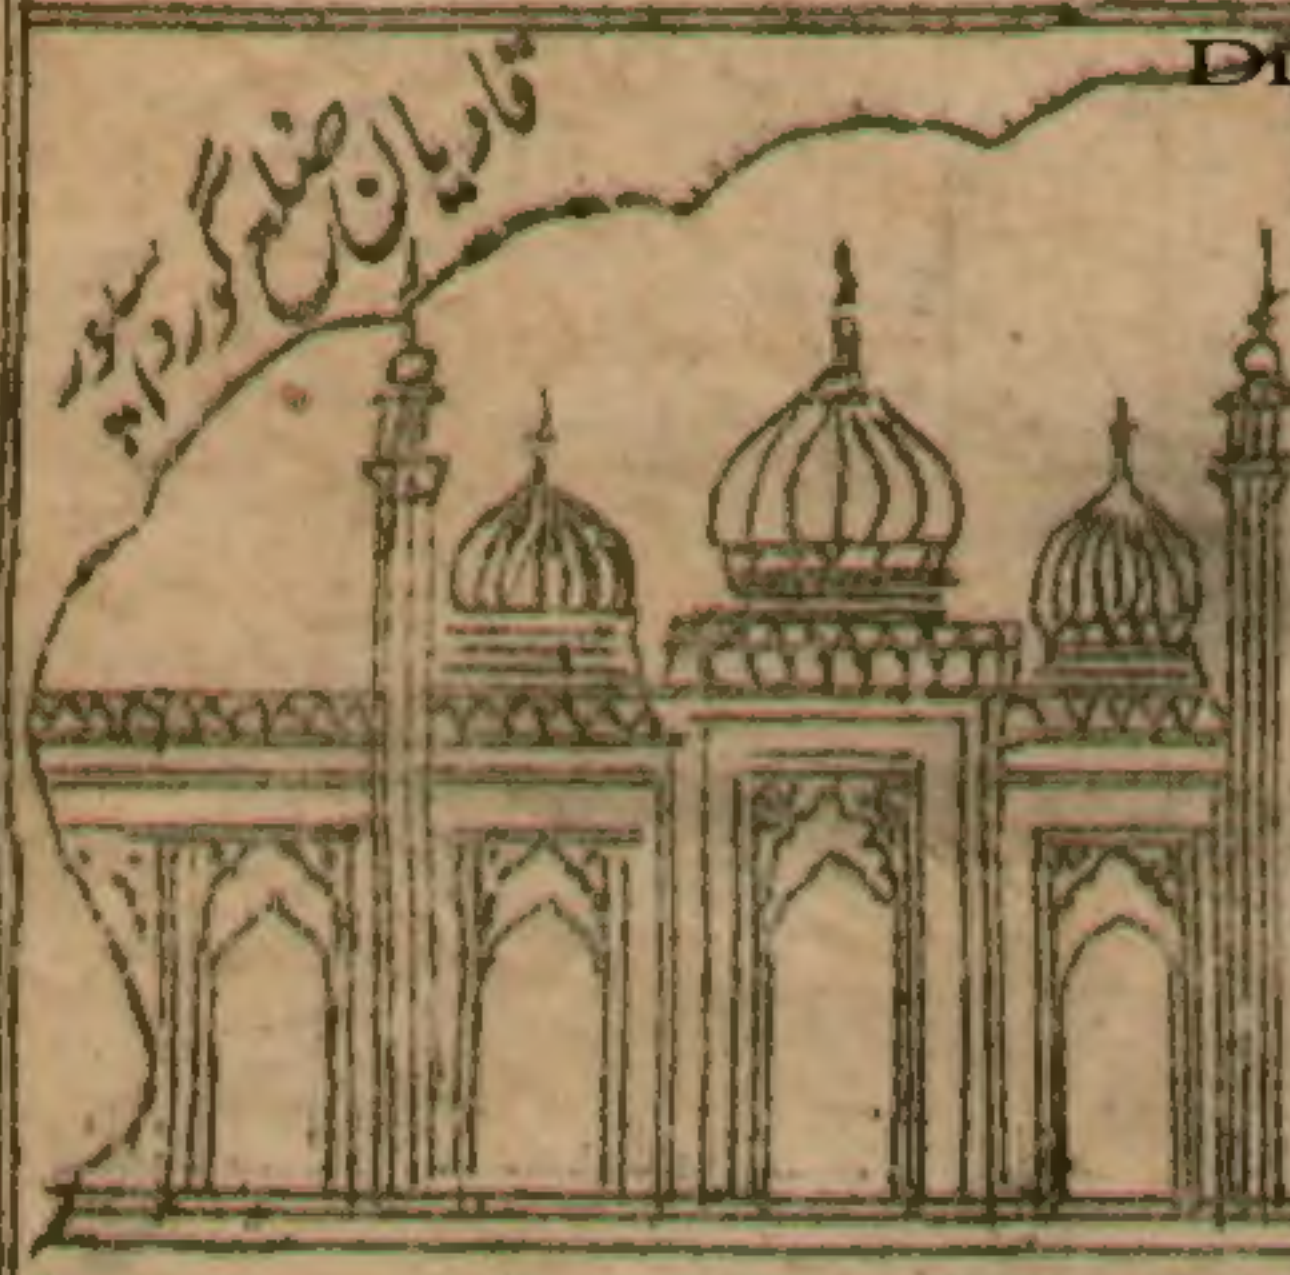 قادیان ضلع گورداسپور
Di